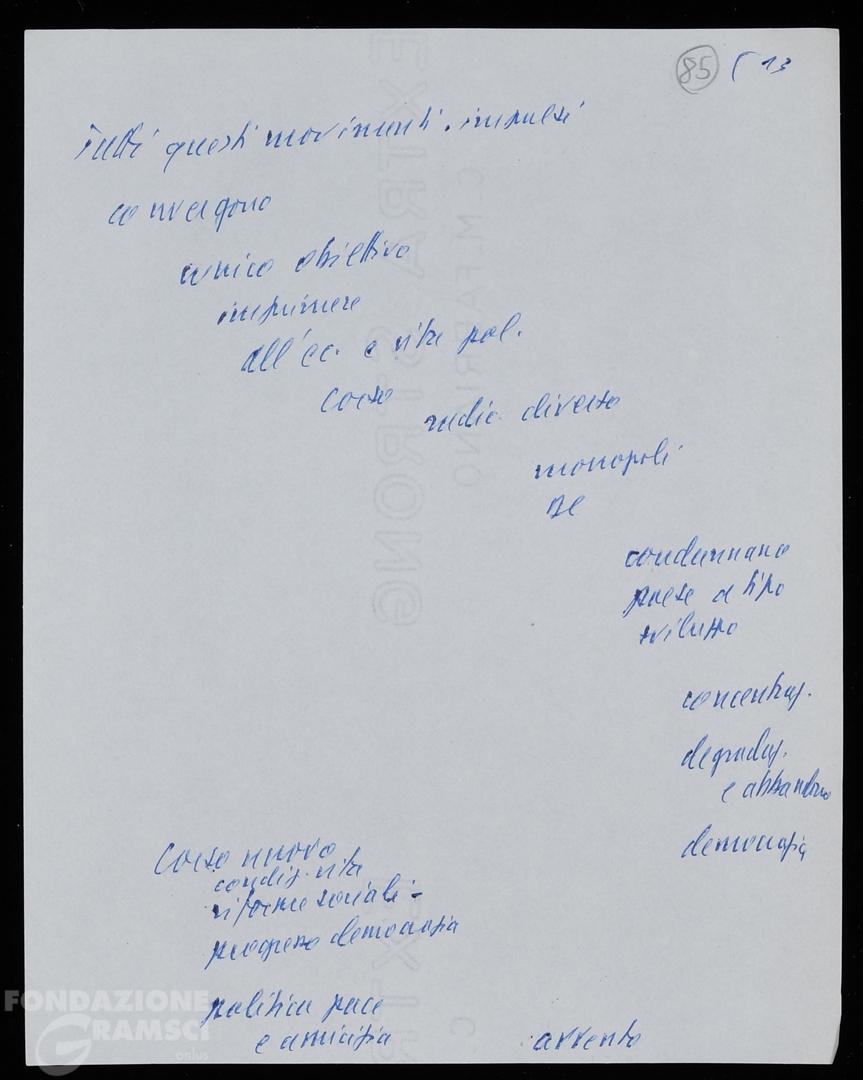 85 ( 13
Tutti questi movimenti. impulsi
convergono
unico obiettivo
imprimere
all'ec. e vita pol.
corso
radic. diverso
monopoli
DC
condannano
paese a tipo
sviluppo
concentraz.
degradaz.
e abbandono
democrazia
Corso nuovo
condiz. vita
riforme sociali -
progresso democrazia
politica pace
e amicizia
avvento
EXTRA STRONG
C.M. FABRIANO
EXTR
C
FONDAZIONE
GRAMSCI
onlus